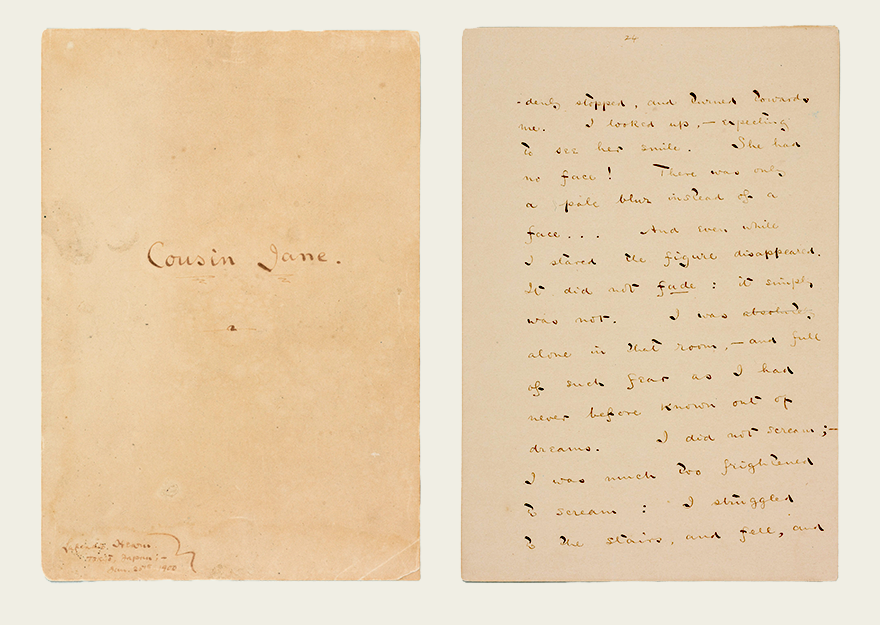 Cousin Jane.
Lafcadio Hearn
Japan:—
24
-denly stopped, and turned towards
me. I looked up,—expecting
to see her smile. She had
no face! There was only
a pale blur instead of a
face... And even while
I stared the figure disappeared.
It did not fade: it simply
was not. I was absolutely
alone in that room,—and full
of such fear as I had
never before known out of
dreams. I did not scream;—
I was much too frightened
to scream: I struggled
to the stairs, and fell, and